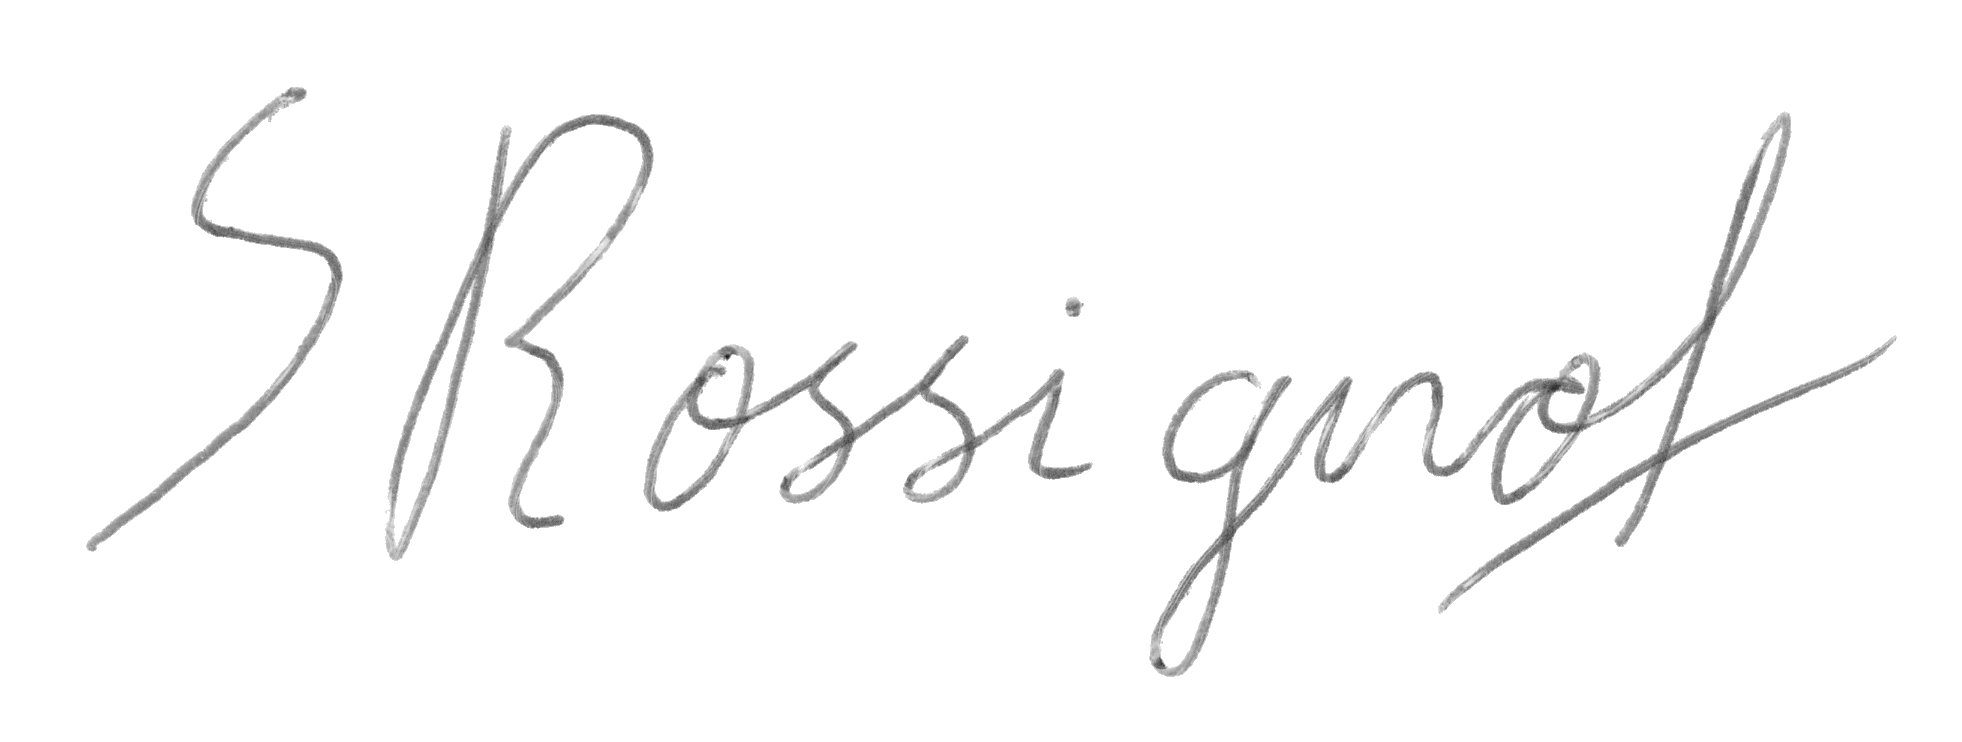 S Rossignol